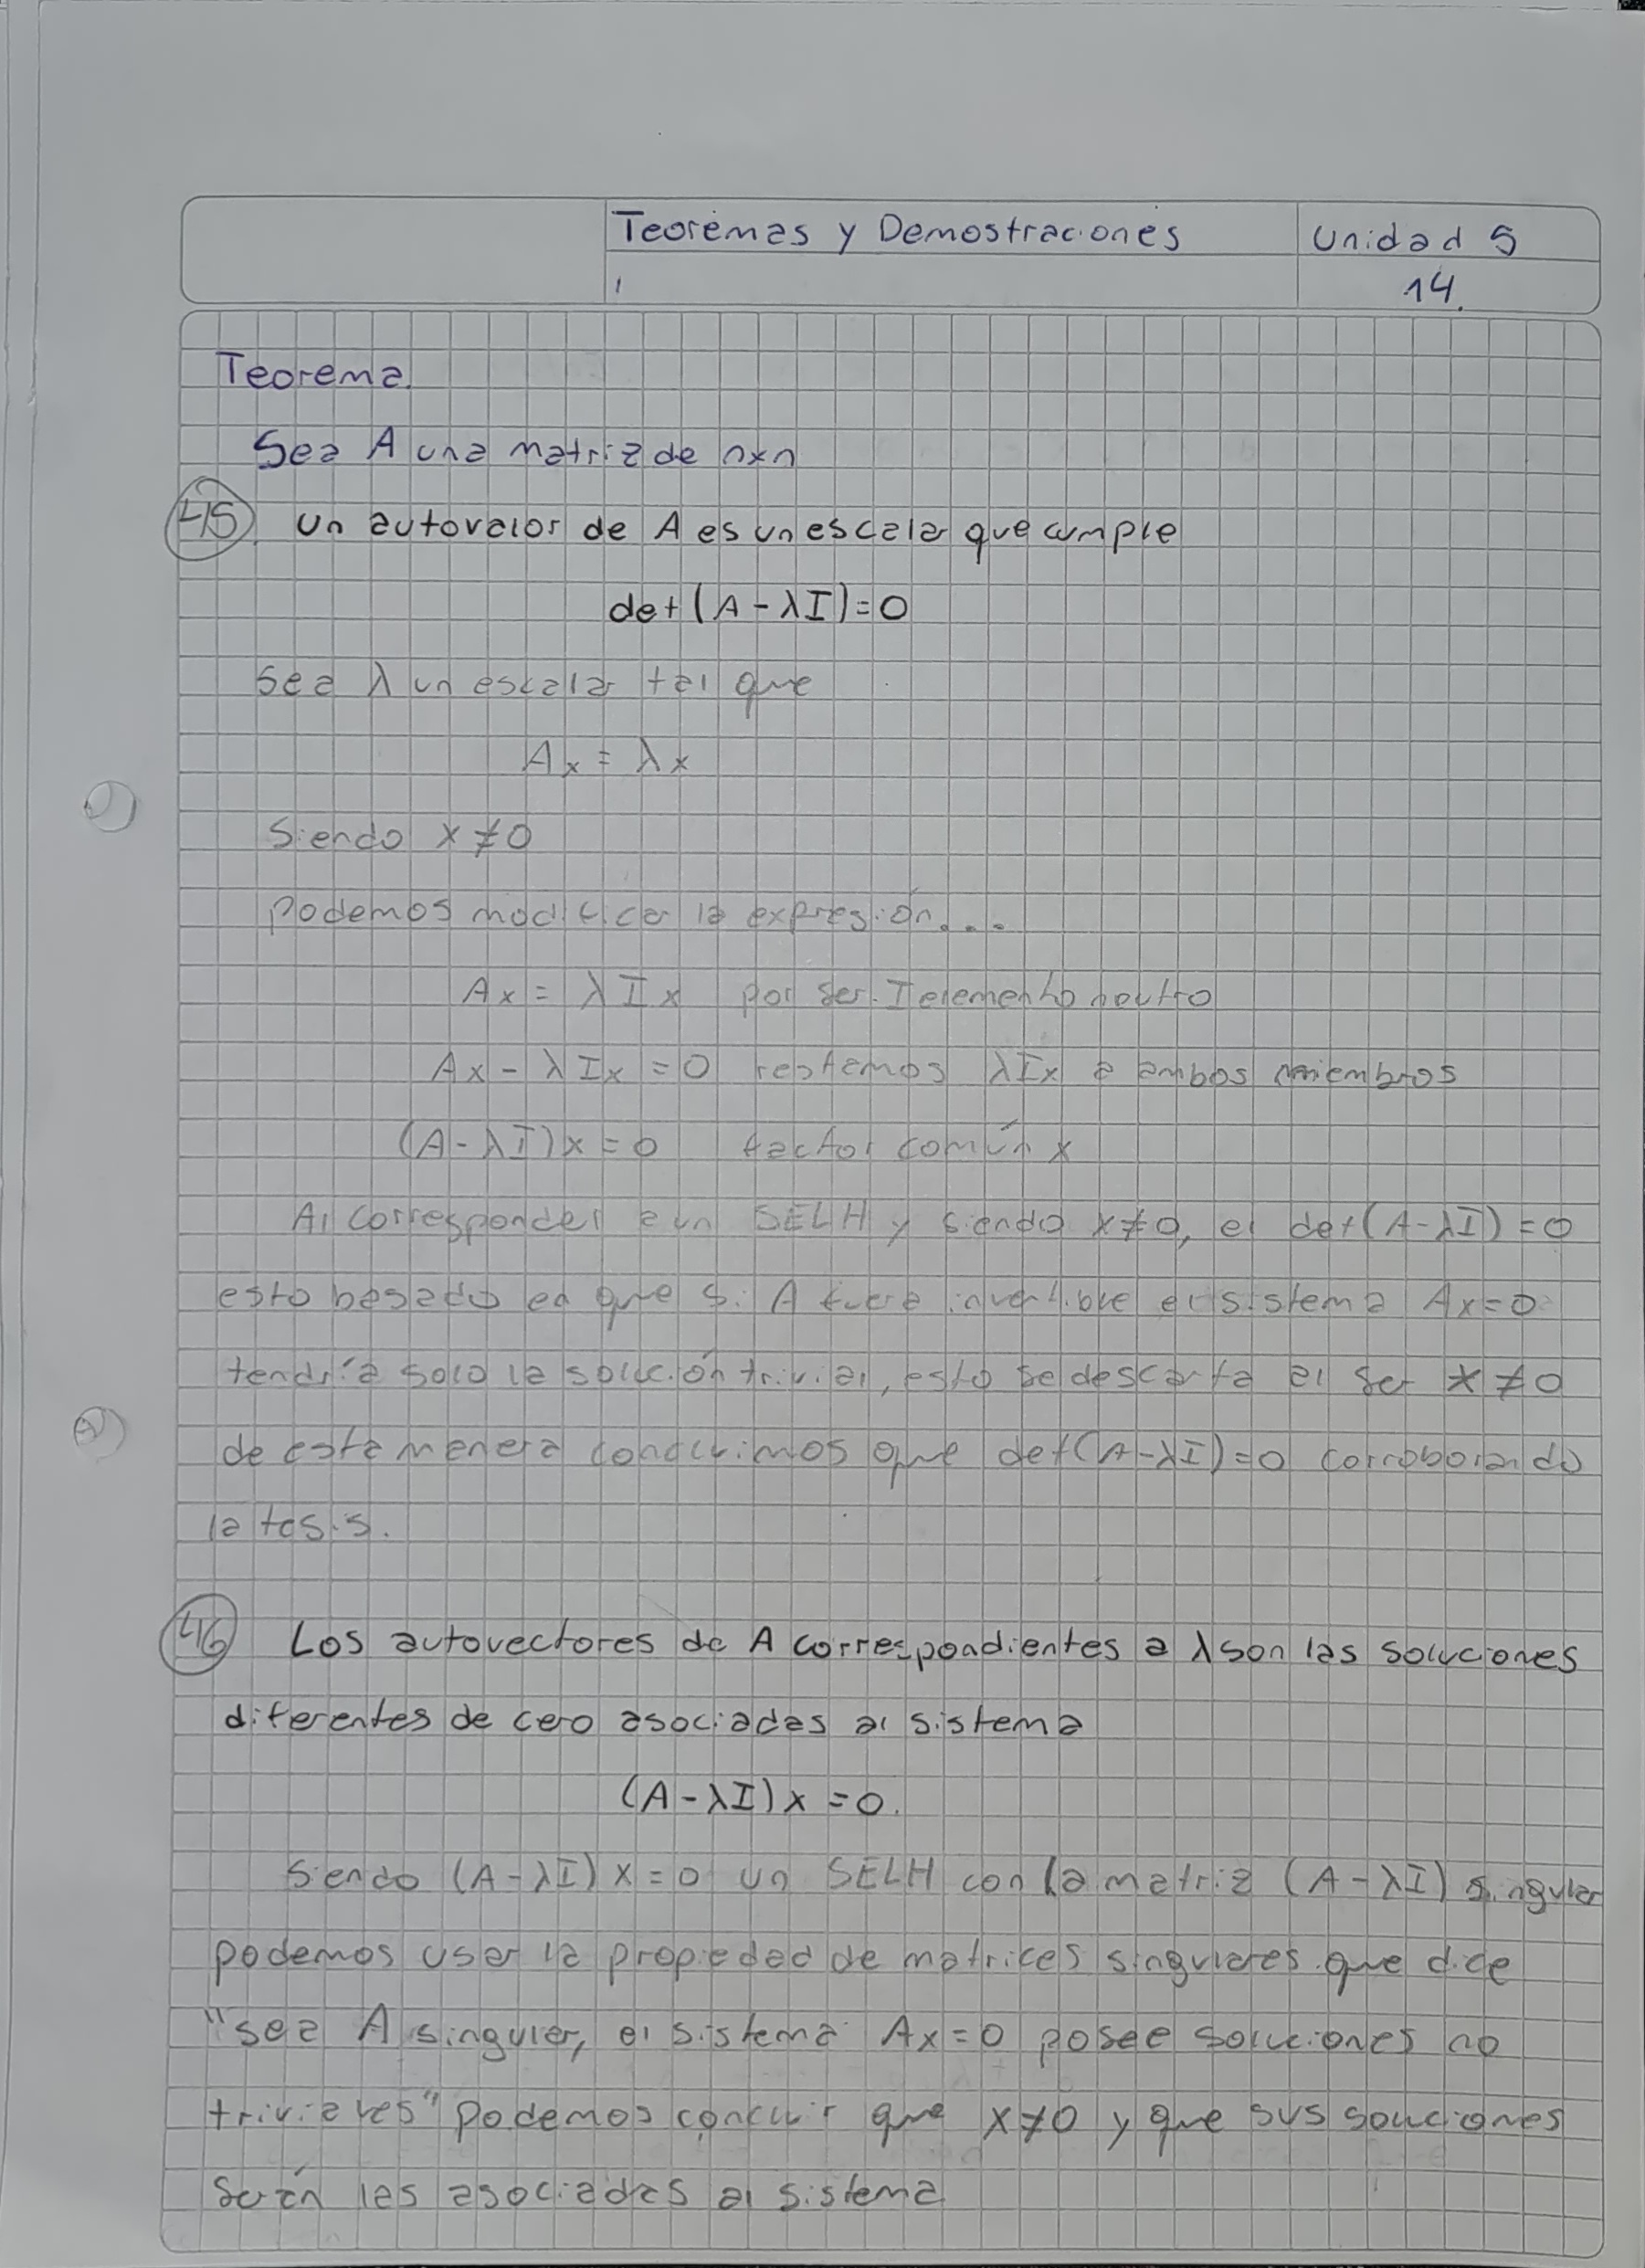 Teoremas y Demostraciones
Unidad 5
14.
Teorema.
Sea A una matriz de nxn
45. un autovalor de A es un escalar que cumple
det(A-λI)=0
Sea λ un escalar tal que
Ax = λx
Siendo x≠0
Podemos modificar la expresión...
Ax = λIx por ser I elemento neutro
Ax - λIx = 0 restamos λIx a ambos miembros
(A-λI)x = 0 factor común x
Al corresponder a un SELH y siendo x≠0, el det(A-λI)=0
esto basado en que si A fuera invertible el sistema Ax=0
tendría solo la solución trivial, esto se descarta al ser x≠0
de esta manera concluimos que det(A-λI)=0 corroborando
la tesis.
46 Los autovectores de A correspondientes a λ son las soluciones
diferentes de cero asociadas al sistema
(A-λI)x = 0.
Siendo (A-λI)x=0 un SELH con la matriz (A-λI) singular
podemos usar la propiedad de matrices singulares que dice
"sea A singular, el sistema Ax=0 posee soluciones no
triviales" Podemos concluir que x≠0 y que sus soluciones
serán las asociadas al sistema